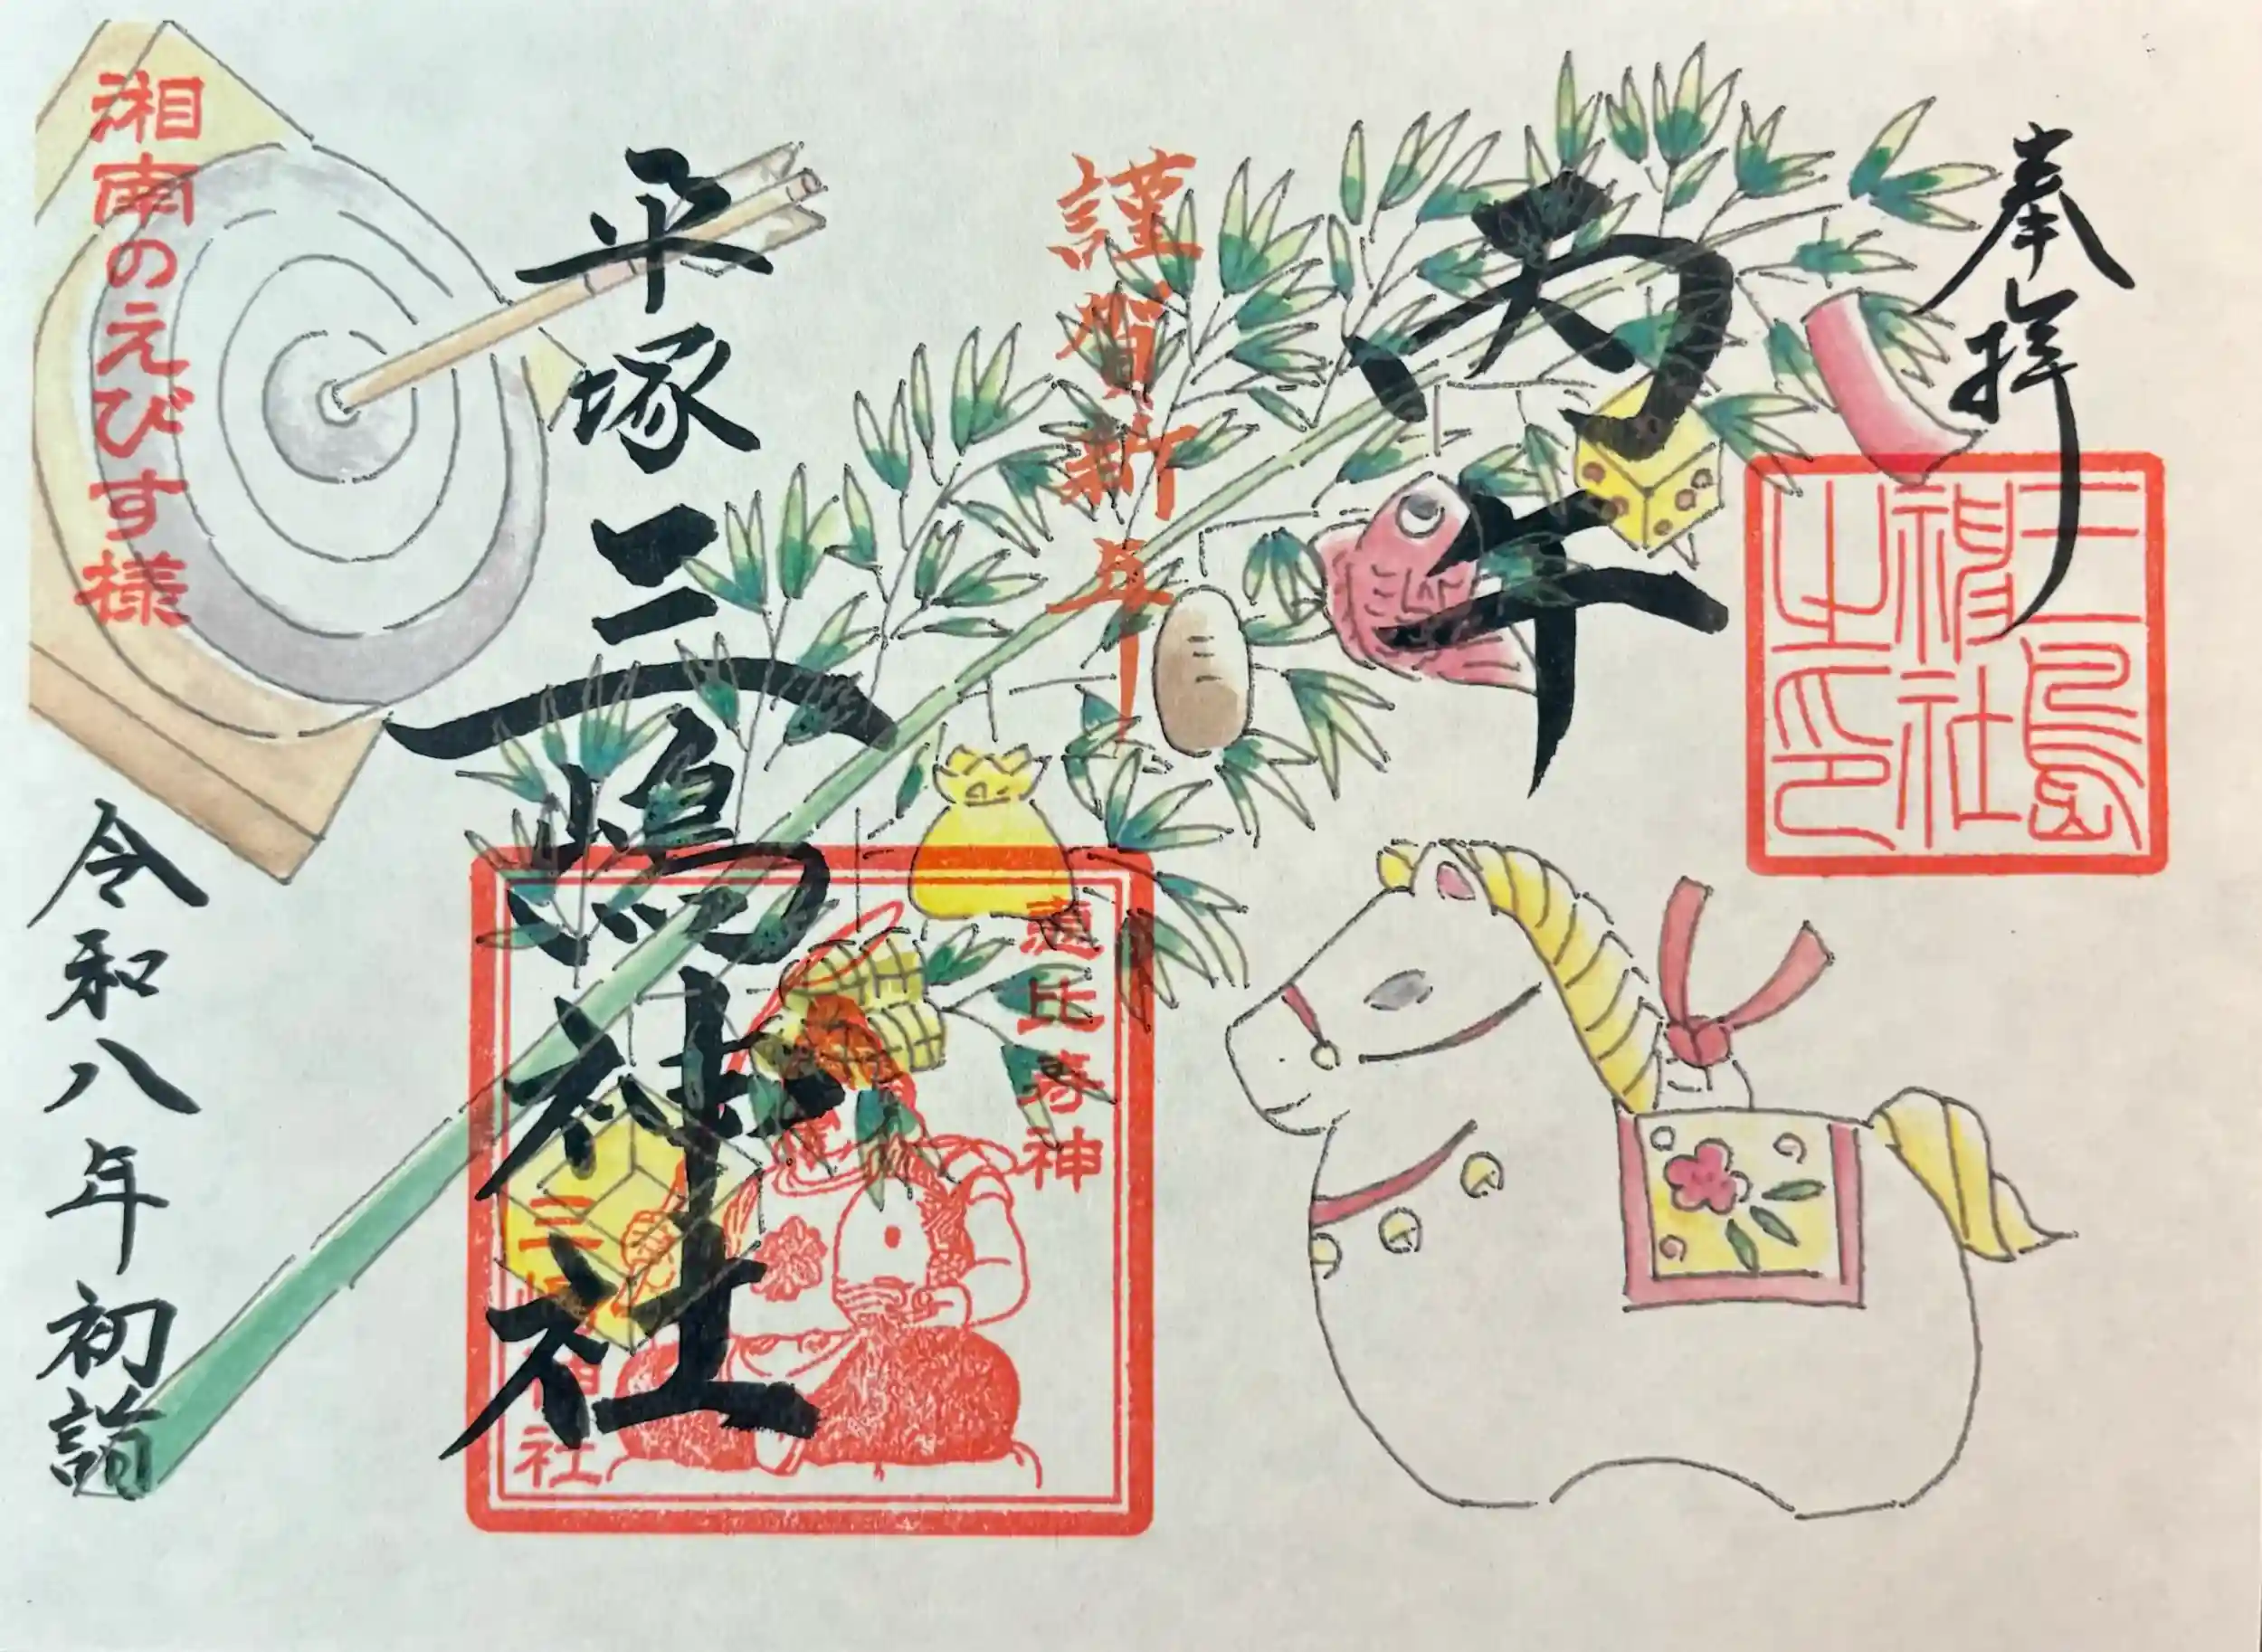 奉拝
三島神社之印
丙午
謹賀新年
恵比寿神
平塚三嶋神社
三嶋神社
湘南のえびす様
令和八年初詣